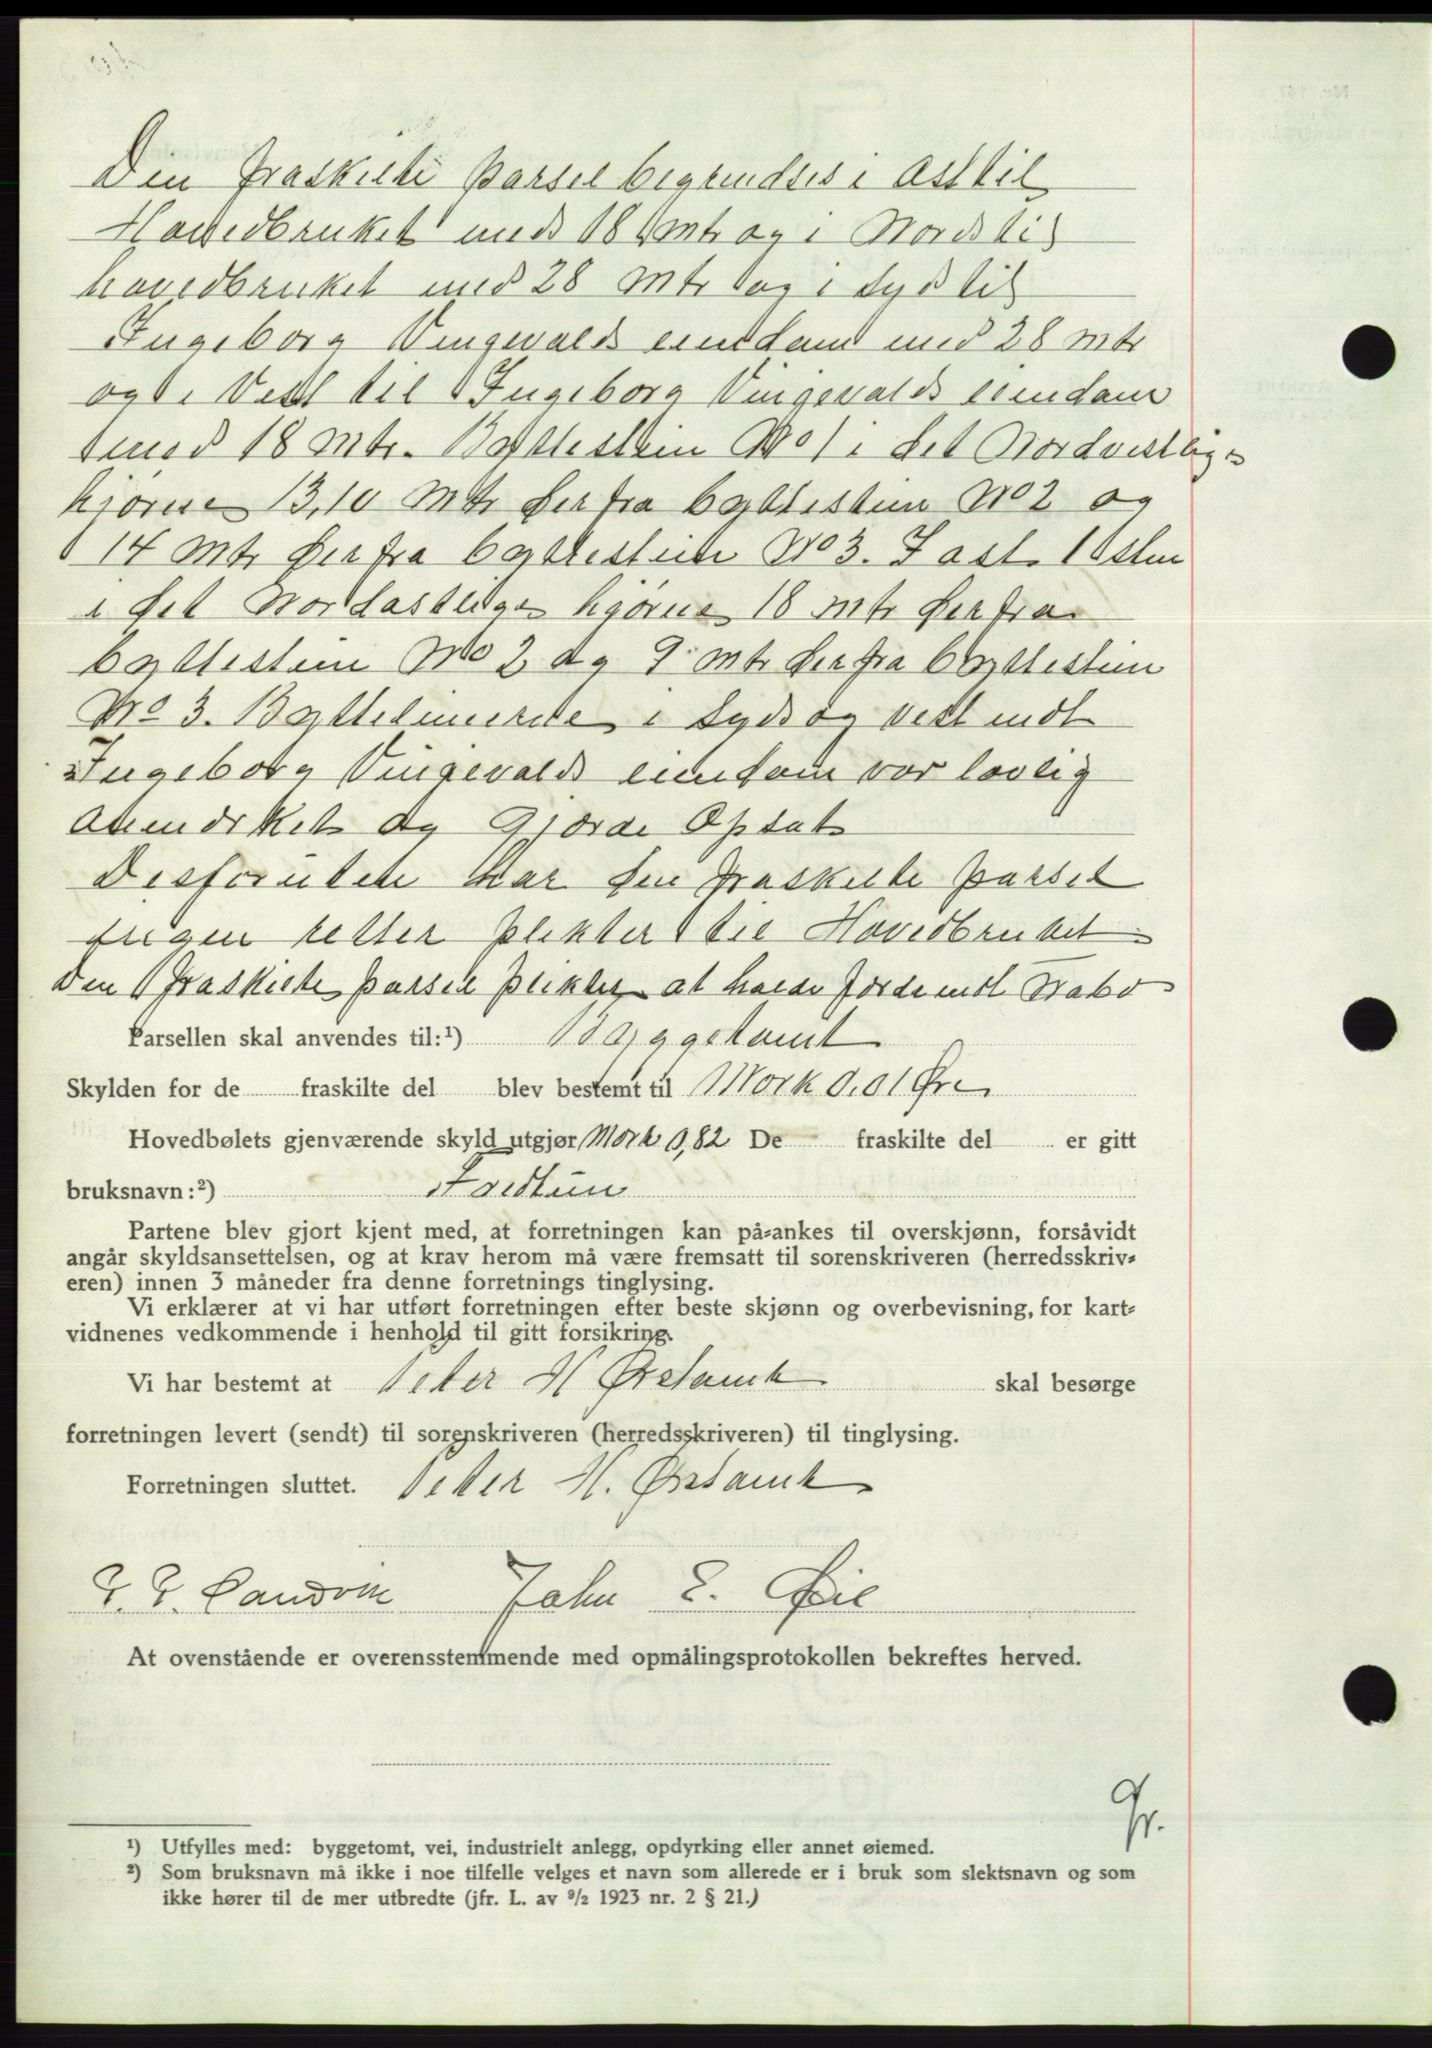 Den fraskilte parsel begrendses i Ast til
Hovedbruket med 18 mtr og i Nord til
hovedbruket med 28 mtr og i Syd til
Ingeborg Vingevalds eiendam med 28 mtr
og i Vest til Ingeborg Vingevalds eiendam
med 18 mtr. Byttestein No 1 i det Nordvestlige
hjørne 13,10 mtr derfra byttestein No 2 og
14 mtr derfra byttestein No 3. I ast 1 sten
i det Nordastlige hjørne 18 mtr derfra
byttestein No 2 og 9 mtr derfra byttestein
No 3. Byttelinierne i Syd og Vest mdt
Ingeborg Vingevalds eiendam var lovlig
og Gjærde Opsat
Desforuten har den fraskilte parsel
ingen retter plikter til Hovedbruket
Den fraskilte parsel plikter at holde jorde mdt Nabo
Parsellen skal anvendes til:¹) Byggetomt
Skylden for de fraskilte del blev bestemt til Mork 0,01 Øre
Hovedbølets gjenværende skyld utgjør Mork 0,82 De fraskilte del er gitt
bruksnavn:²)
Partene blev gjort kjent med, at forretningen kan på-ankes til overskjønn, forsåvidt
angår skyldsansettelsen, og at krav herom må være fremsatt til sorenskriveren (herredsskriv-
eren) innen 3 måneder fra denne forretnings tinglysing.
Vi erklærer at vi har utført forretningen efter beste skjønn og overbevisning, for kart-
vidnenes vedkommende i henhold til gitt forsikring.
Vi har bestemt at Peter H Ørstavik skal besørge
forretningen levert (sendt) til sorenskriveren (herredsskriveren) til tinglysing.
Forretningen sluttet. Peter H. Ørstavik
E. E. Sandvik John E. Øie
At ovenstående er overensstemmende med opmålingsprotokollen bekreftes herved.
Gr.
¹) Utfylles med: byggetomt, vei, industrielt anlegg, opdyrking eller annet øiemed.
²) Som bruksnavn må ikke i noe tilfelle velges et navn som allerede er i bruk som slektsnavn og som
ikke hører til de mer utbredte (jfr. L. av ⁹/₂ 1923 nr. 2 § 21.)